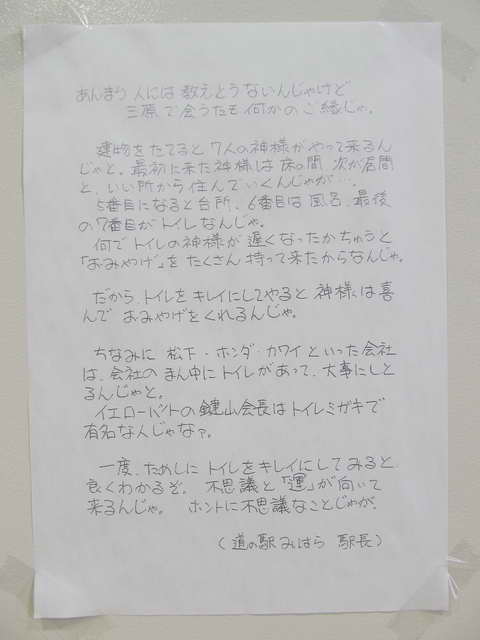 あんまり人には教えとうないんじゃけど
三原で会うたも何かのご縁じゃ。
建物をたてると7人の神様がやって来るん
じゃと。最初に来た神様は床の間、次が居間
と、いい所から住んでいくんじゃが…
5番目になると台所、6番目は風呂、最後
の7番目がトイレなんじゃ。
何でトイレの神様が遅くなったかちゅうと
「おみやげ」をたくさん持って来たからなんじゃ。
だから、トイレをキレイにしてやると神様は喜
んでおみやげをくれるんじゃ。
ちなみに松下・ホンダ・カワイといった会社
は、会社のまん中にトイレがあって、大事にしと
るんじゃと。
イエローハットの鍵山会長はトイレミガキで
有名な人じゃなァ。
一度、ためしにトイレをキレイにしてみると
良くわかるぞ。不思議と「運」が向いて
来るんじゃ。ホントに不思議なことじゃが。
(道の駅みはら 駅長)